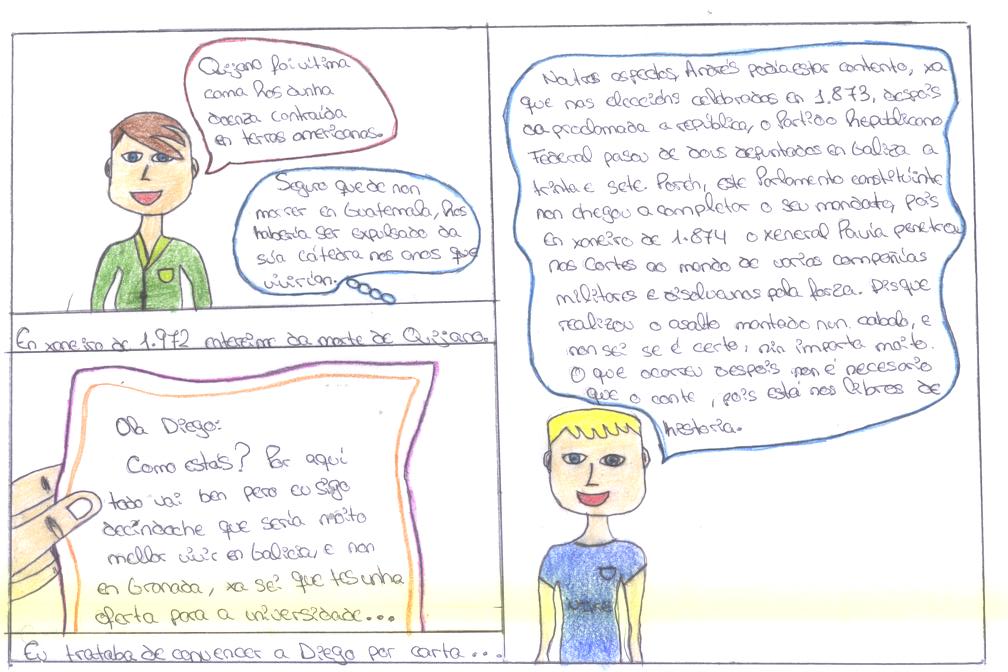 Quijano foi vitima
coma Ros dunha
doenza contraída
en terras americanas.
Seguro que de non
morrer en Guatemala, Ros
habería ser expulsado da
súa cátedra nos anos que
vivirían.
En xaneiro de 1.972 enteirme da morte de Quijano.
Ola Diego:
Como estás? Por aquí
todo vai ben pero eu sigo
decíndoche que sería moito
mellor vivir en Galicia, e non
en Granada, xa sei que tes unha
oferta para a universidade...
Eu trataba de convencer a Diego por carta...
Noutros aspectos, Andrés podía estar contento, xa
que nas eleccións celebradas en 1.873, despois
da proclamada a república, o Partido Republicano
Federal pasou de dous deputados en Galiza a
trinta e sete. Poren, este Parlamento constituínte
non chegou a completar o seu mandato, pois
en xaneiro de 1.874 o xeneral Pavía penetrou
nas Cortes ao mando de varias compañías
militares e disolveunas pola forza. Disque
realizou o asalto montado nun cabalo, e
non sei se é certo, nin importa moito.
O que ocorreu despois non é necesario
que o conte, pois está nos libros de
historia.